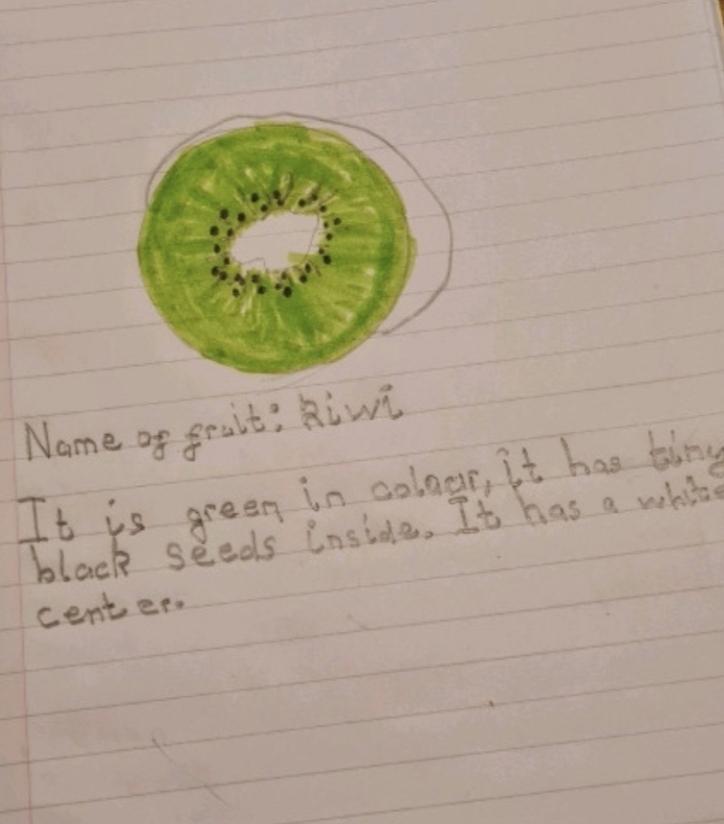 Name of fruit: kiwi
It is green in colour, it has tiny
black seeds inside. It has a white
center.